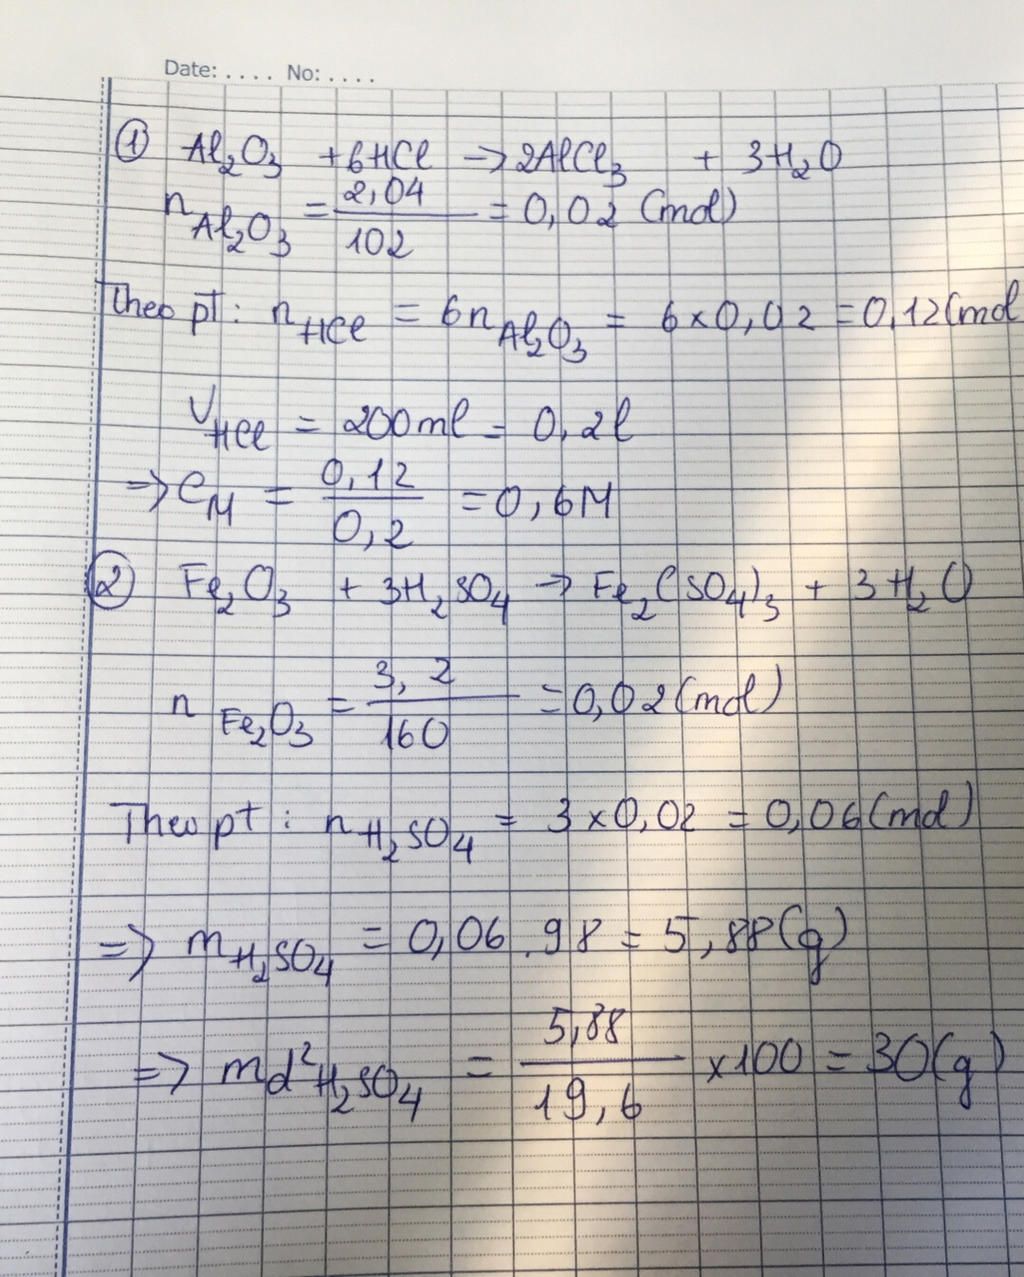 Date: .... No: ....
① Al₂O₃ + 6HCl → 2AlCl₃ + 3H₂O
n Al₂O₃ = 2,04 / 102 = 0,02 (mol)
Theo pt: n HCl = 6n Al₂O₃ = 6 × 0,02 = 0,12 (mol
V HCl = 200ml = 0,2l
⇒ C M = 0,12 / 0,2 = 0,6M
② Fe₂O₃ + 3H₂SO₄ → Fe₂(SO₄)₃ + 3H₂O
n Fe₂O₃ = 3,2 / 160 = 0,02 (mol)
Theo pt: n H₂SO₄ = 3 × 0,02 = 0,06 (mol)
⇒ m H₂SO₄ = 0,06 . 98 = 5,88 (g)
⇒ md² H₂SO₄ = 5,88 / 19,6 × 100 = 30 (g)